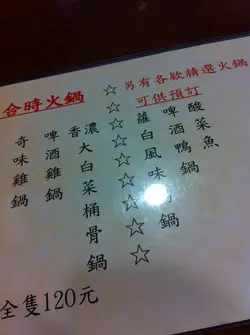 合時火鍋
奇味雞鍋
啤酒雞鍋
香濃大白菜桶骨鍋
☆☆☆☆☆☆☆☆
另有各欵精選火鍋
可供預訂
蘿白風味鍋
啤酒鴨鍋
酸菜魚
全隻120元